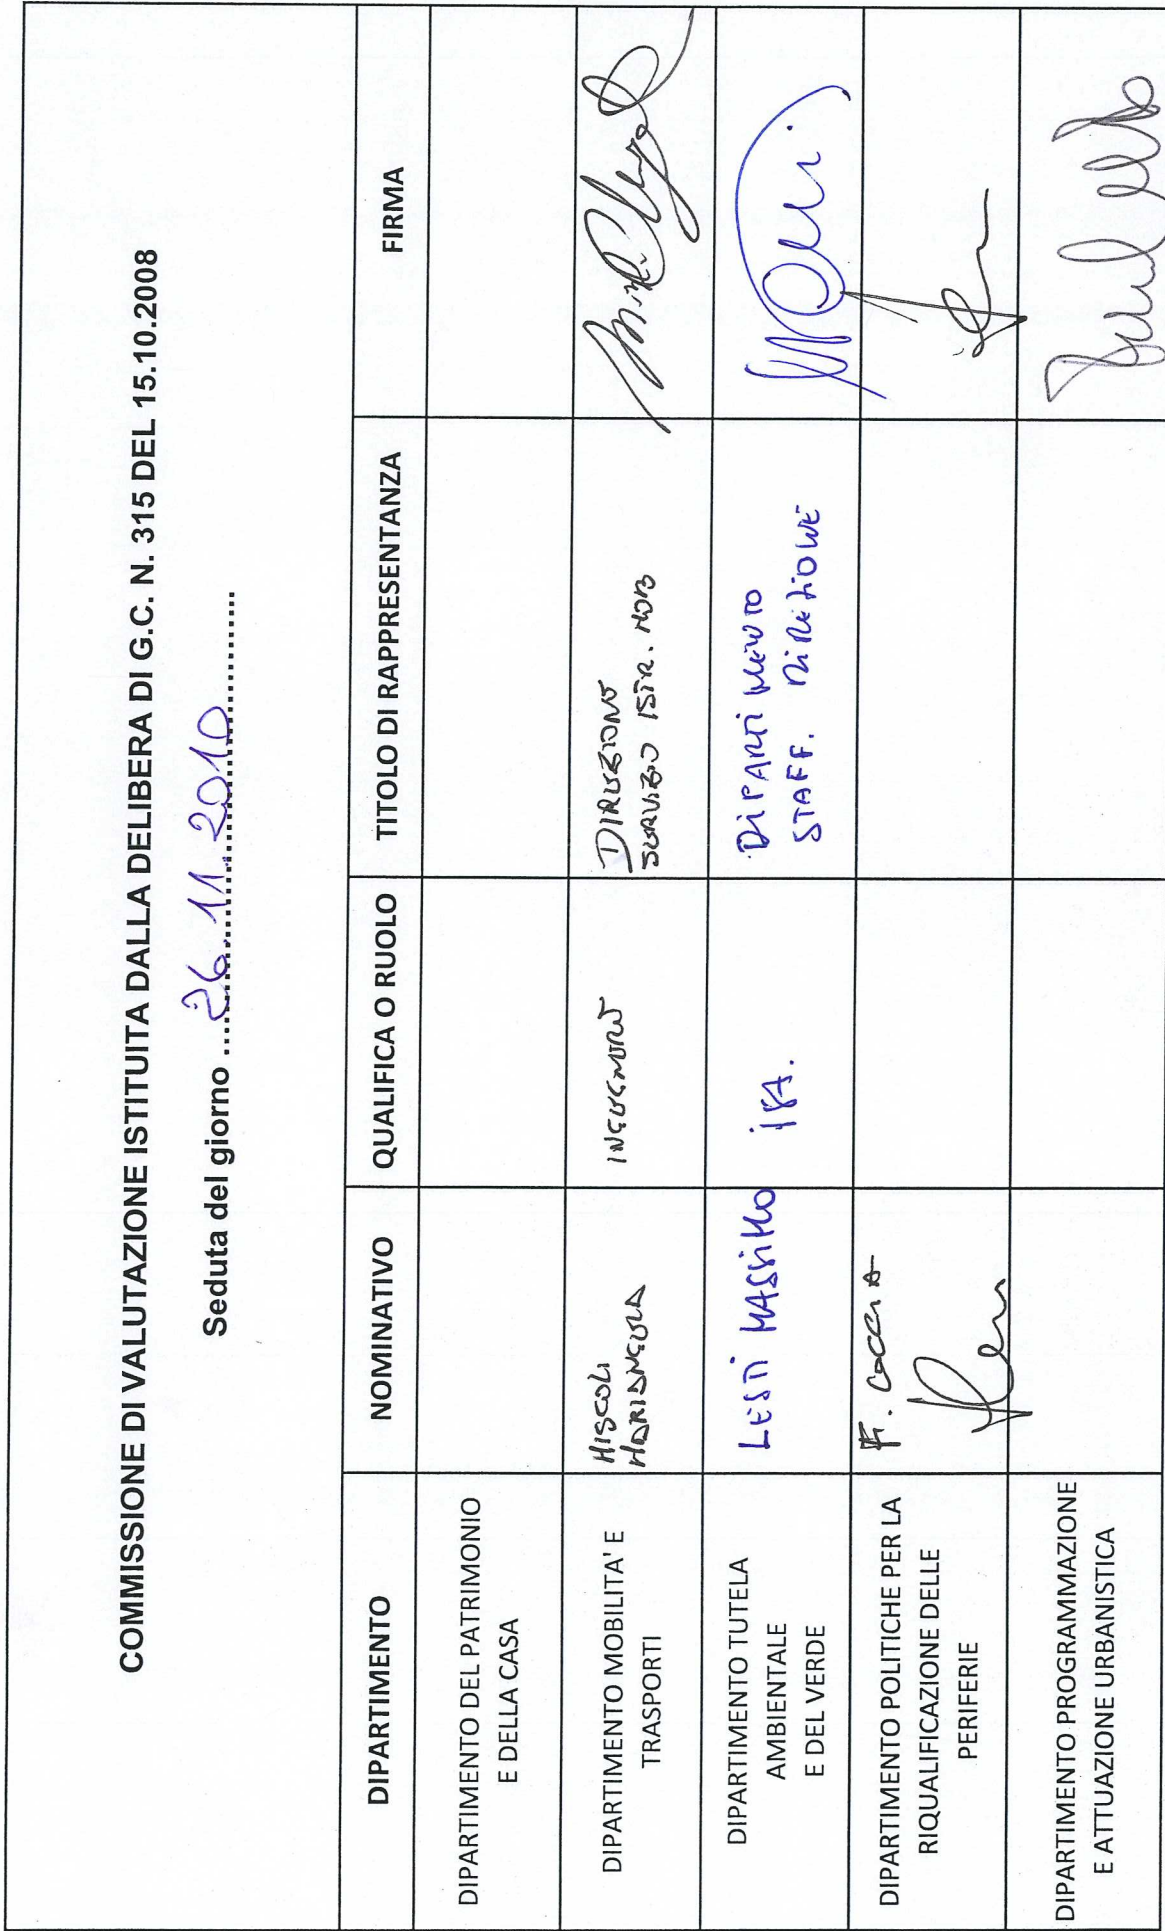 COMMISSIONE DI VALUTAZIONE ISTITUITA DALLA DELIBERA DI G.C. N. 315 DEL 15.10.2008
Seduta del giorno 26.11.2010
DIPARTIMENTO NOMINATIVO QUALIFICA O RUOLO TITOLO DI RAPPRESENTANZA FIRMA
DIPARTIMENTO DEL PATRIMONIO
E DELLA CASA
DIPARTIMENTO MOBILITA' E
TRASPORTI
MISCOLI
MARIANGELA
INGEGNERE
DIREZIONE
SERVIZIO ISTR. MOB
DIPARTIMENTO TUTELA
AMBIENTALE
E DEL VERDE
LESTI MASSIMO
DIPARTIMENTO
STAFF. DIREZIONE
DIPARTIMENTO POLITICHE PER LA
RIQUALIFICAZIONE DELLE
PERIFERIE
F. COCCIA
DIPARTIMENTO PROGRAMMAZIONE
E ATTUAZIONE URBANISTICA